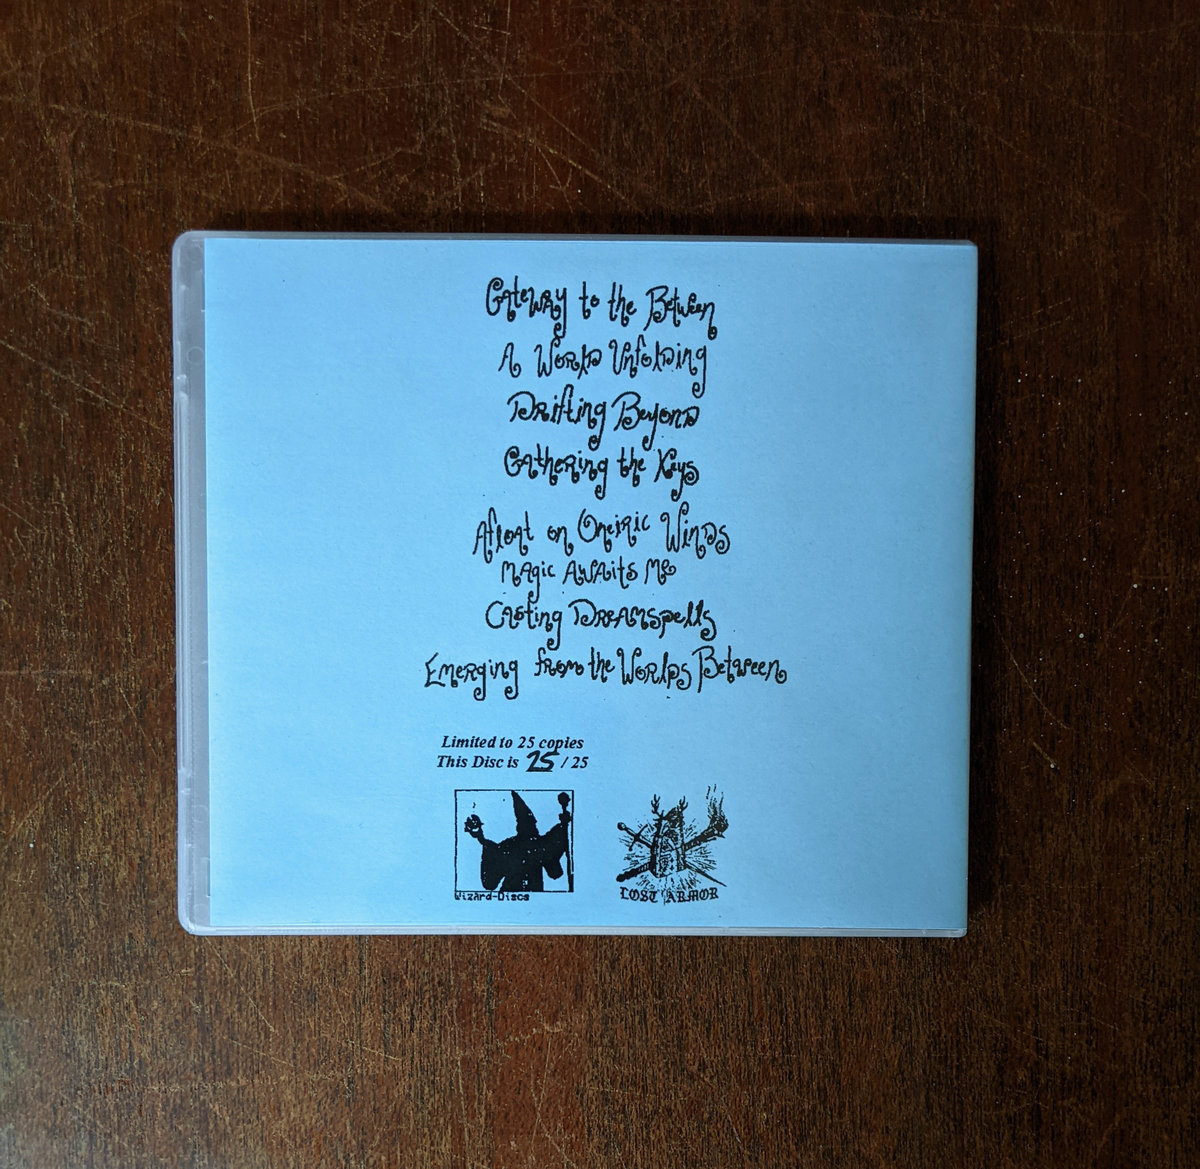 Gateway to the Between
A World Unfolding
Drifting Beyond
Gathering the Keys
Afloat on Oneiric Winds
Magic Awaits Me
Casting Dreamspells
Emerging from the Worlds Between
Limited to 25 copies
This Disc is 25 / 25
Wizard-Discs
LOST ARMOR